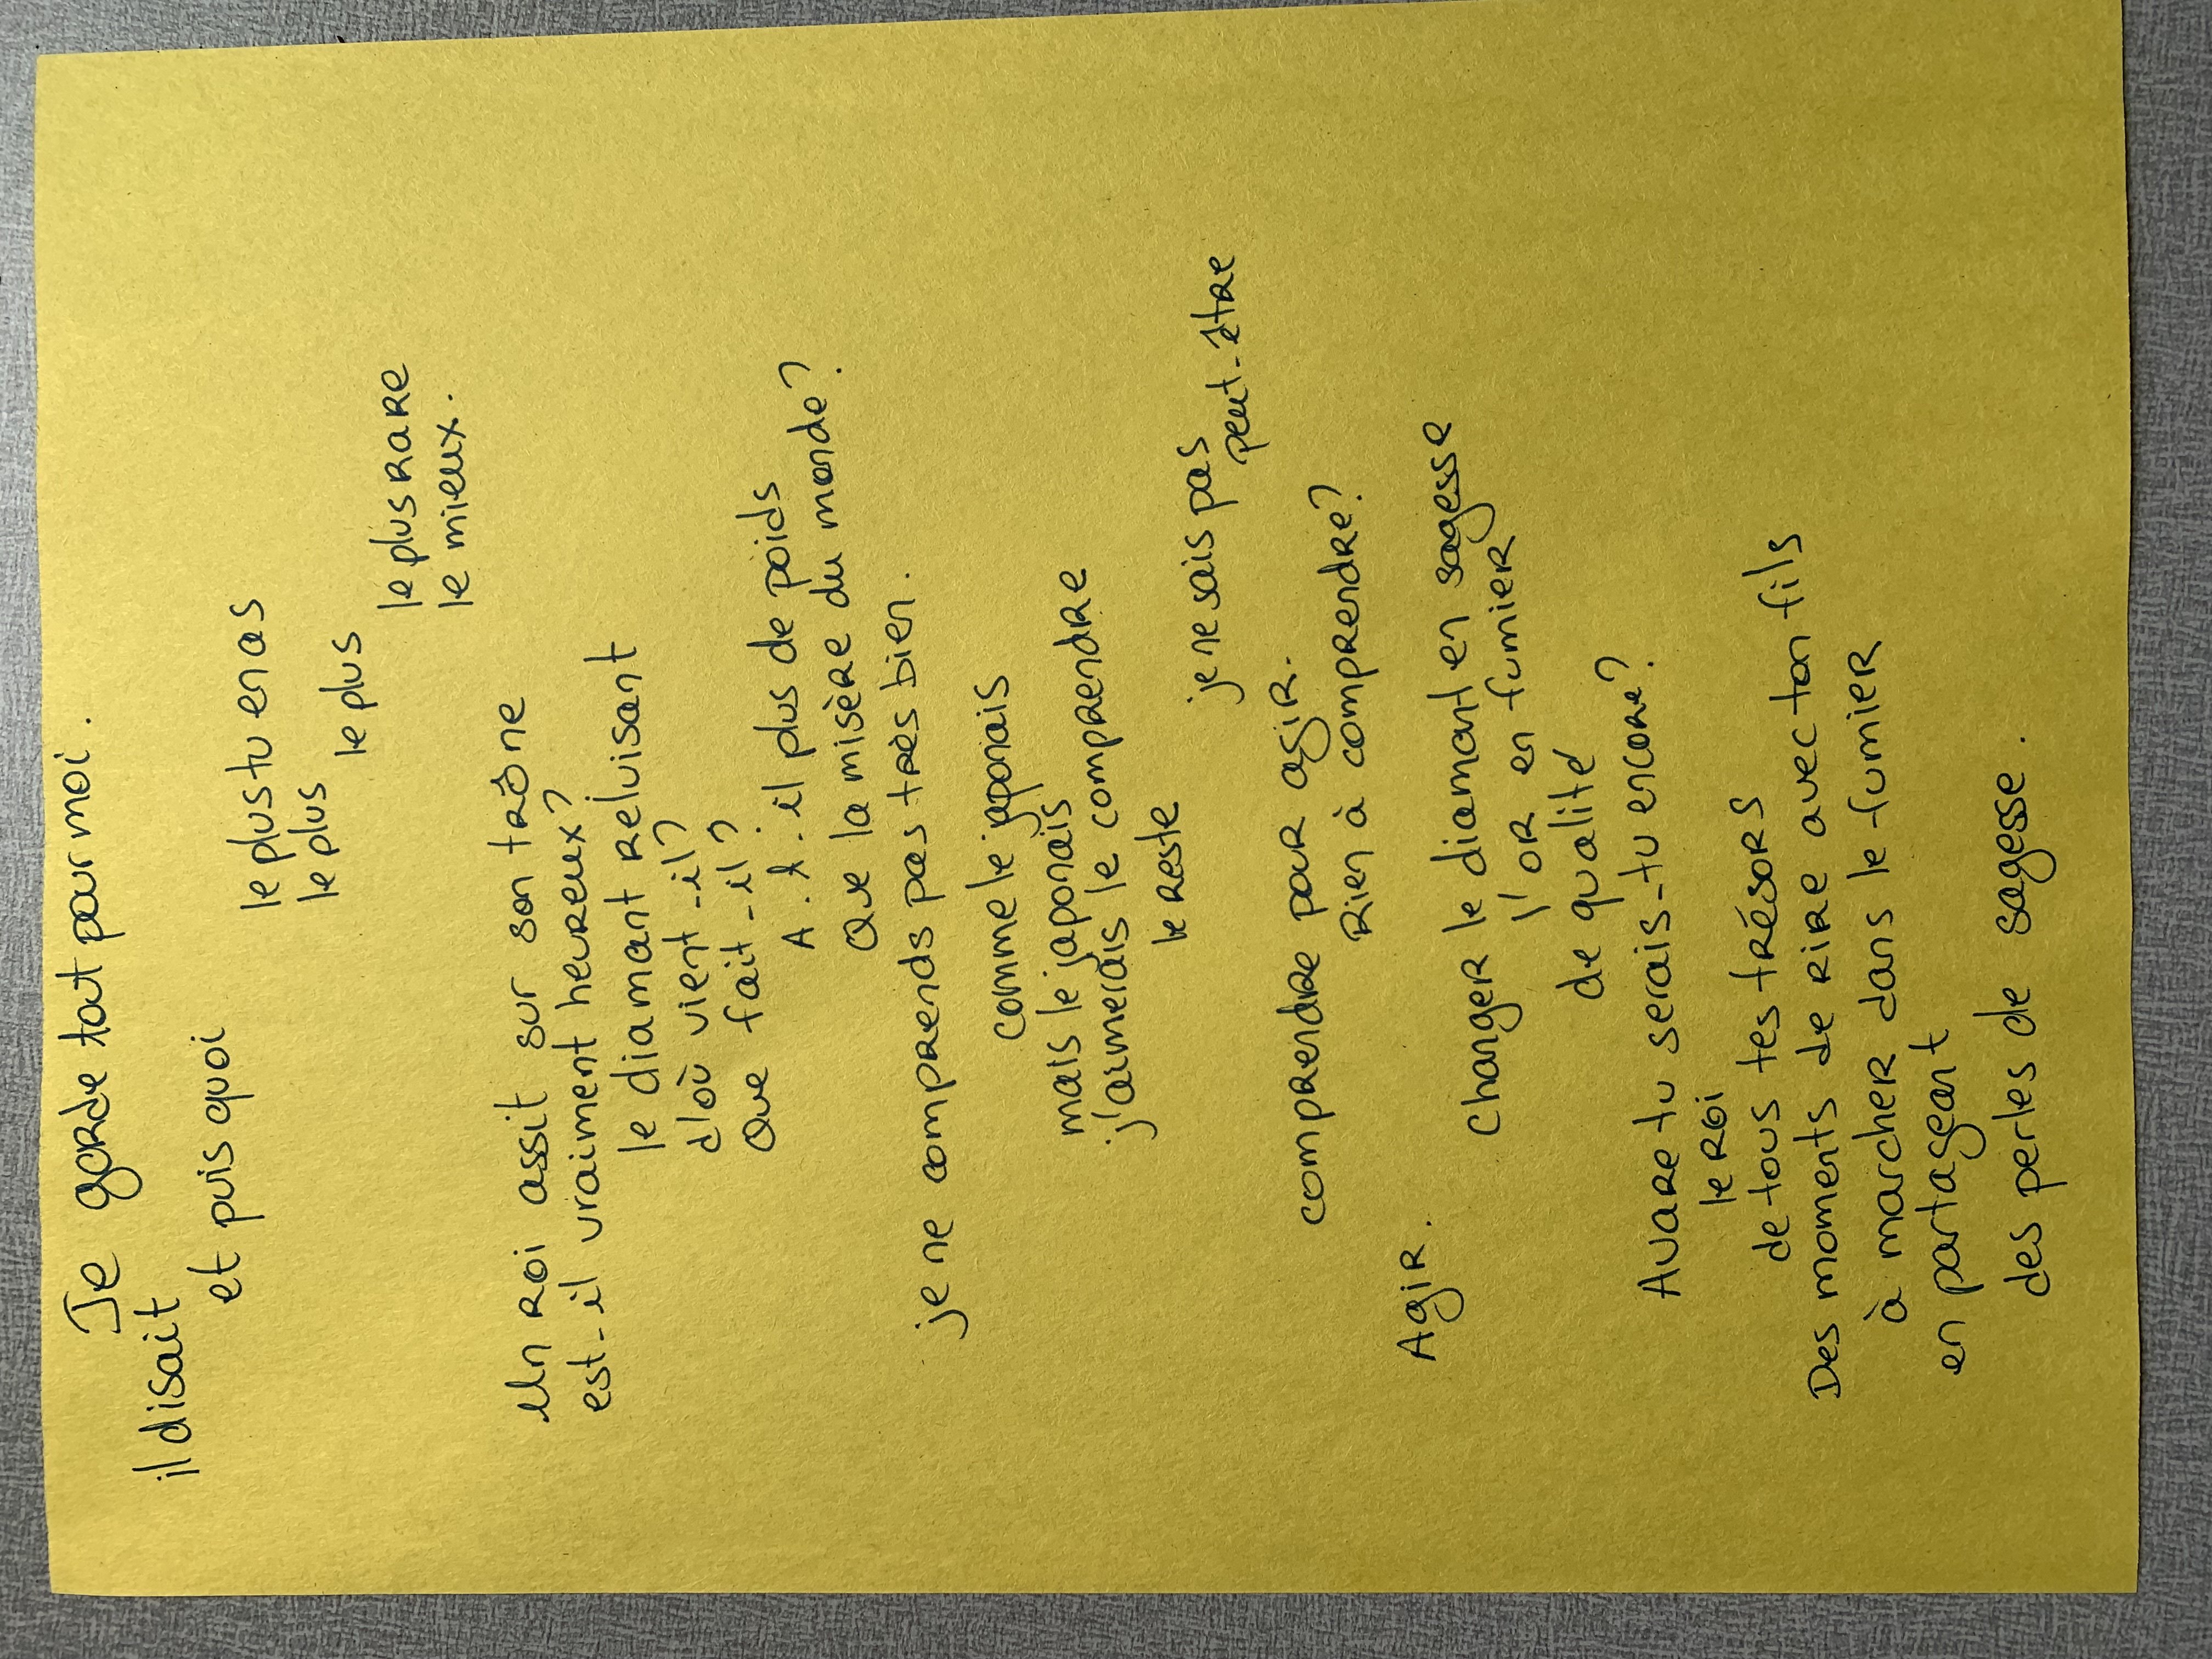 Je garde tout pour moi.
il disait
et puis quoi
le plus tu en as
le plus
le plus
le plus rare
le mieux.
Un roi assit sur son trône
est-il vraiment heureux?
le diamant reluisant
d'où vient-il?
Que fait-il?
A-t-il plus de poids
Que la misère du monde?
je ne comprends pas très bien.
comme le japonais
mais le japonais
j'aimerais le comprendre
le reste
je ne sais pas
peut-être
comprendre pour agir.
Rien à comprendre?
Agir.
Changer le diamant en sagesse
l'or en fumier
de qualité
Avare tu serais-tu encore?
le roi
de tous tes trésors
Des moments de rire avec ton fils
à marcher dans le fumier
en partageant
des perles de sagesse.